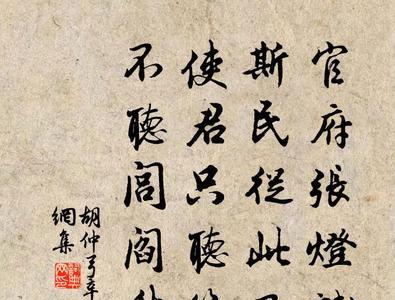 官府張燈
斯民從此
使君只聽
不聽閭閻
胡仲弓葦
網集